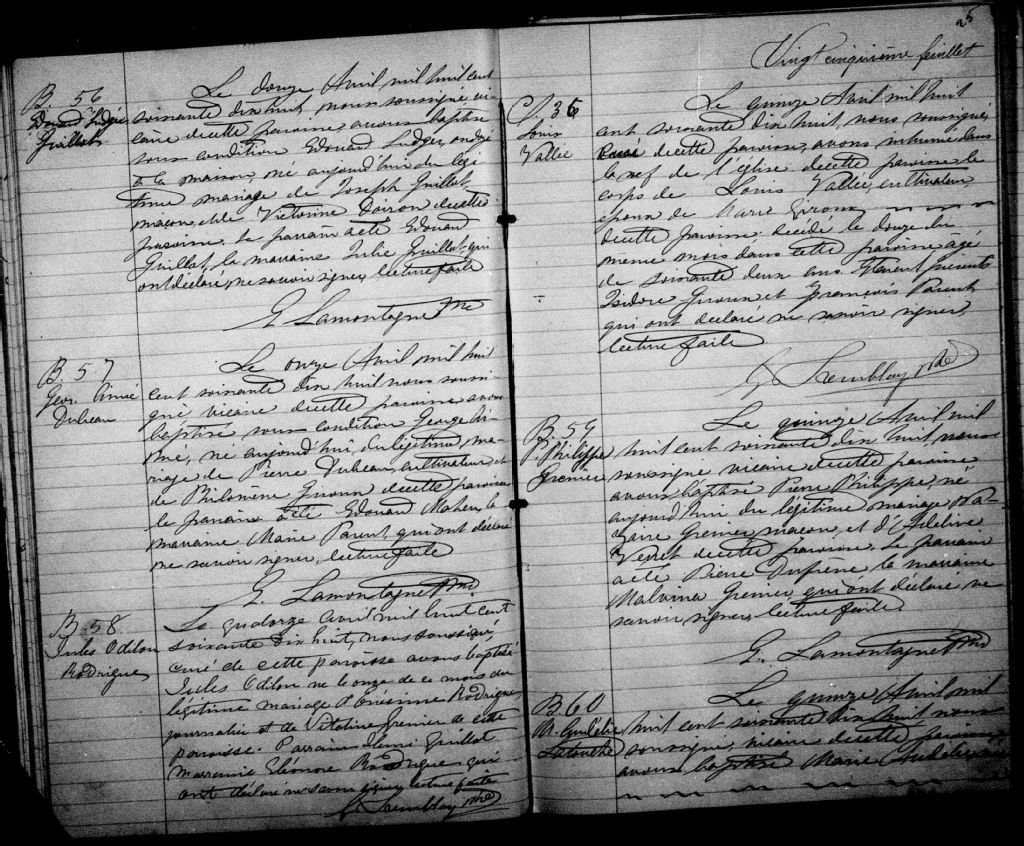 B. 56
Edouard Ludger
Guillot
Le douze Avril mil huit cent
soixante dix huit, nous soussigné, vi-
caire de cette paroisse, avons baptisé
sous condition Edouard Ludger, ondoyé
à la maison, né aujourd'hui du légi-
time mariage de Joseph Guillot,
maçon, et de Victorine Doiron de cette
paroisse. Le parrain a été Edouard
Guillot, la marraine Julie Guillot qui
ont déclaré ne savoir signer, lecture faite
G Lamontagne Ptre
B. 57
Geor. Aimé
Dubeau
Le onze Avril mil huit
cent soixante dix huit nous soussi-
gné vicaire de cette paroisse avons
baptisé sous condition George Ai-
mé, né aujourd'hui, du légitime ma-
riage de Pierre Dubeau, cultivateur, et
de Philomène Giroux de cette paroisse
le parrain a été Edouard Maheu, la
marraine Marie Parent, qui ont déclaré
ne savoir signer, lecture faite
G. Lamontagne Ptre
B. 58
Jules Odilon
Rodrigue
Le quatorze avril mil huit cent
soixante dix huit, nous soussigné,
curé de cette paroisse avons baptisé
Jules Odilon né le onze de ce mois du
légitime mariage d'Onésime Rodrigue
journalier et de Vitaline Grenier de cette
paroisse. Parrain Guillot
Marraine Eléonore Rodrigue qui
ont déclaré ne savoir signer, lecture faite
G Tremblay Ptre
25
Vingt cinquième feuillet
S. 36
Louis
Vallée
Le quinze Avril mil huit
cent soixante dix huit, nous soussigné,
curé de cette paroisse, avons inhumé dans
la nef de l'église de cette paroisse le
corps de Louis Vallée, cultivateur,
époux de Marie Giroux
de cette paroisse. décédé le douze du
même mois dans cette paroisse, âgé
de soixante deux ans. Etaient présents
Isidore Giroux et François Parent
qui ont déclaré ne savoir signer,
lecture faite
G Tremblay Ptre
B. 59
P. Philippe
Grenier
Le quinze Avril mil
huit cent soixante dix huit, nous
soussigné vicaire de cette paroisse
avons baptisé Pierre Philippe, né
aujourd'hui du légitime mariage Na-
zaire Grenier, maçon, et d'Adeline
Verret de cette paroisse. Le parrain
a été Pierre Dufresne la marraine
Malvina Grenier qui ont déclaré ne
savoir signer, lecture faite
G. Lamontagne Ptre
B 60
Latouche
Le quinze Avril mil
huit cent soixante dix huit nous
soussigné, vicaire de cette paroisse
avons baptisé Marie